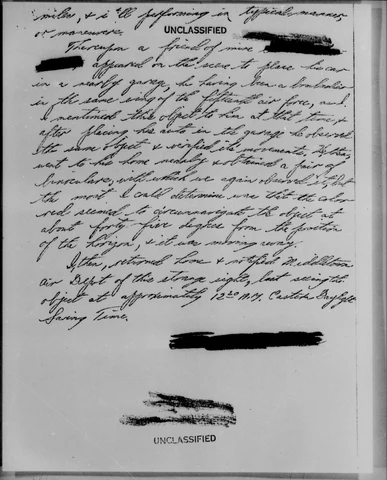 miles, & still performing in typical manner
or maneuver.
UNCLASSIFIED
Thereupon a friend of mine
appeared on the scene to place his car
in a nearby garage, he having been a bombardier
in the same wing of the fifteenth air force, and
I mentioned this object to him at that time, &
after placing his auto in the garage he observed
the same object & verified its movements. He then
went to his home nearby & obtained a pair of
binoculars, with which we again observed it, but
the most I could determine was that the color
red seemed to circumnavigate the object at
about forty-five degrees from the position
of the horizon, & it was moving away.
I then, returned home & notified Middletown
Air Dept of this strange sight, last seeing the
object at approximately A.M. Eastern Daylight
Saving Time.
UNCLASSIFIED